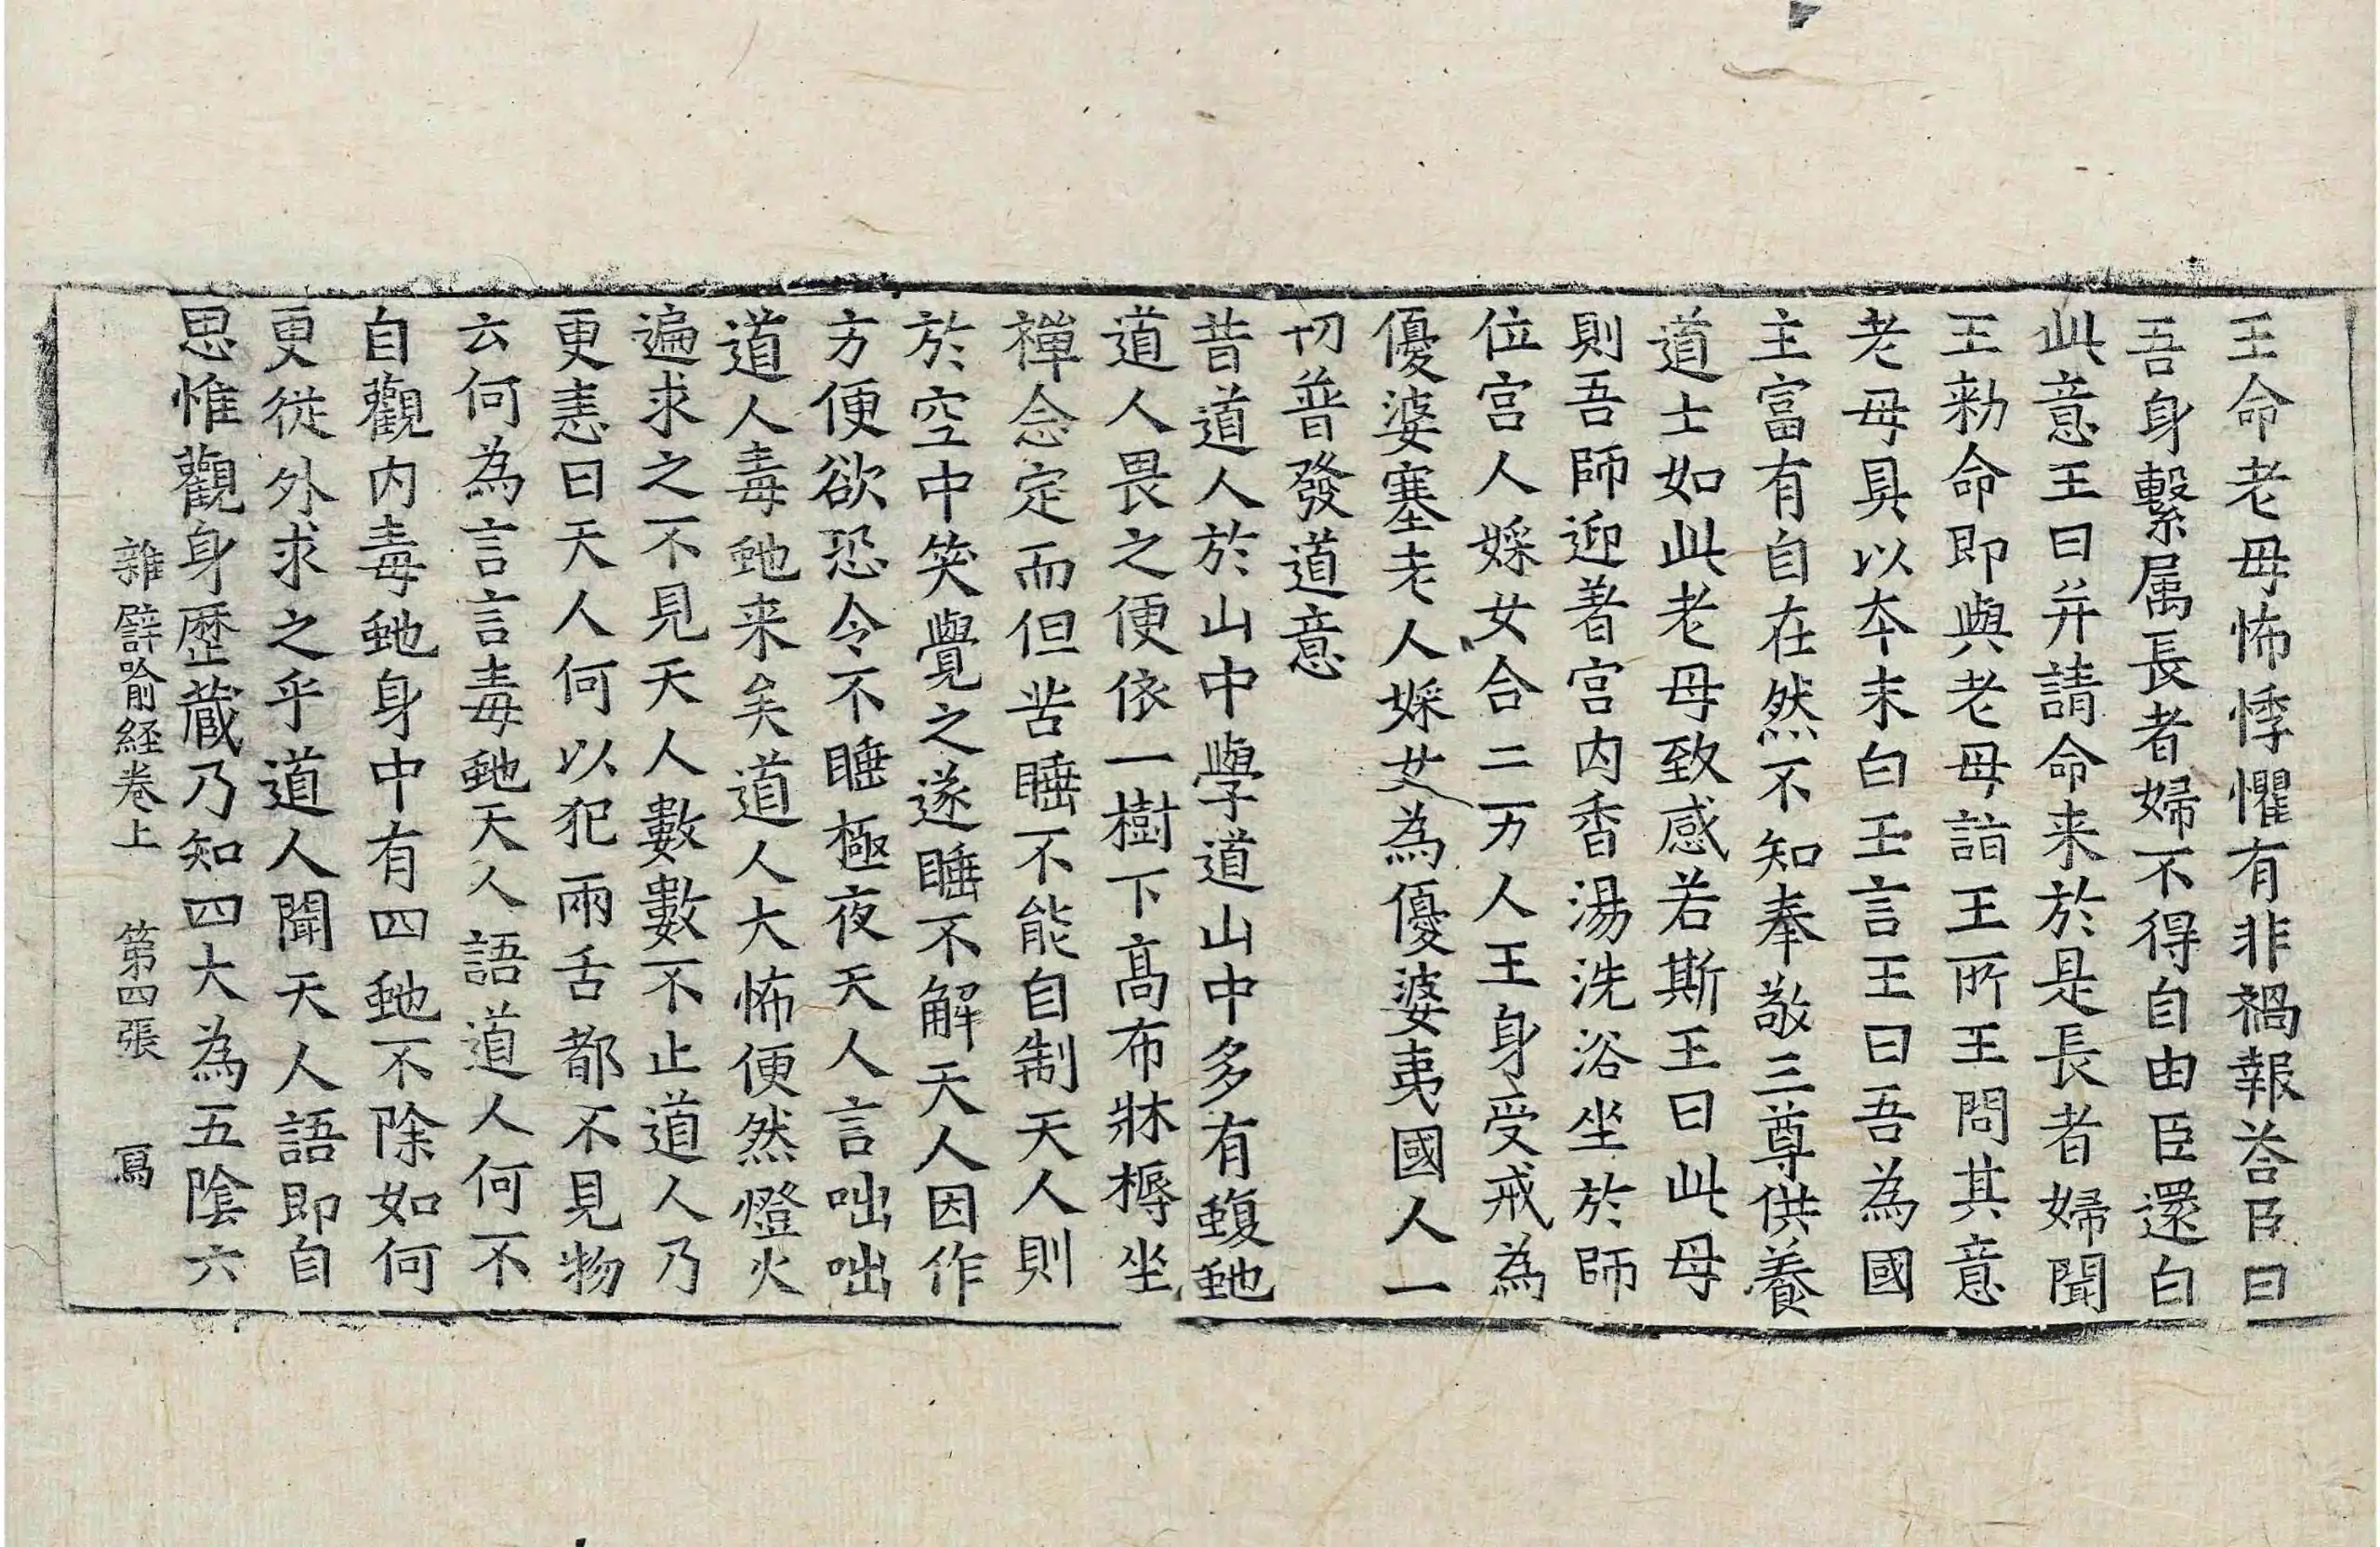 王命老母怖悸懼有非禍報荅臣曰
吾身繫属長者婦不得自由臣還白
此意王曰并請命来於是長者婦聞
王勑命即與老母詣王所王問其意
老母具以夲末白王言王曰吾為國
主富有自在然不知奉敬三尊供養
道士如此老母致感若斯王曰此母
則吾師迎著宫内香湯洗浴坐於師
位宫人婇女合二万人王身受戒為
優婆塞老人婇女為優婆夷國人一
切普發道意
昔道人於山中學道山中多有蝮虵
道人畏之便依一樹下髙布牀褥坐
禪念定而但苦睡不能自制天人則
於空中笑覺之遂睡不解天人因作
方便欲恐令不睡極夜天人言咄咄
道人毒虵来矣道人大怖便然燈火
遍求之不見天人數數不止道人乃
更恚曰天人何以犯兩舌都不見物
云何為言言毒虵天人語道人何不
自觀内毒虵身中有四虵不除如何
更從外求之乎道人聞天人語即自
思惟觀身歴蔵乃知四大為五陰六
雜譬喻経卷上　第四張　寫